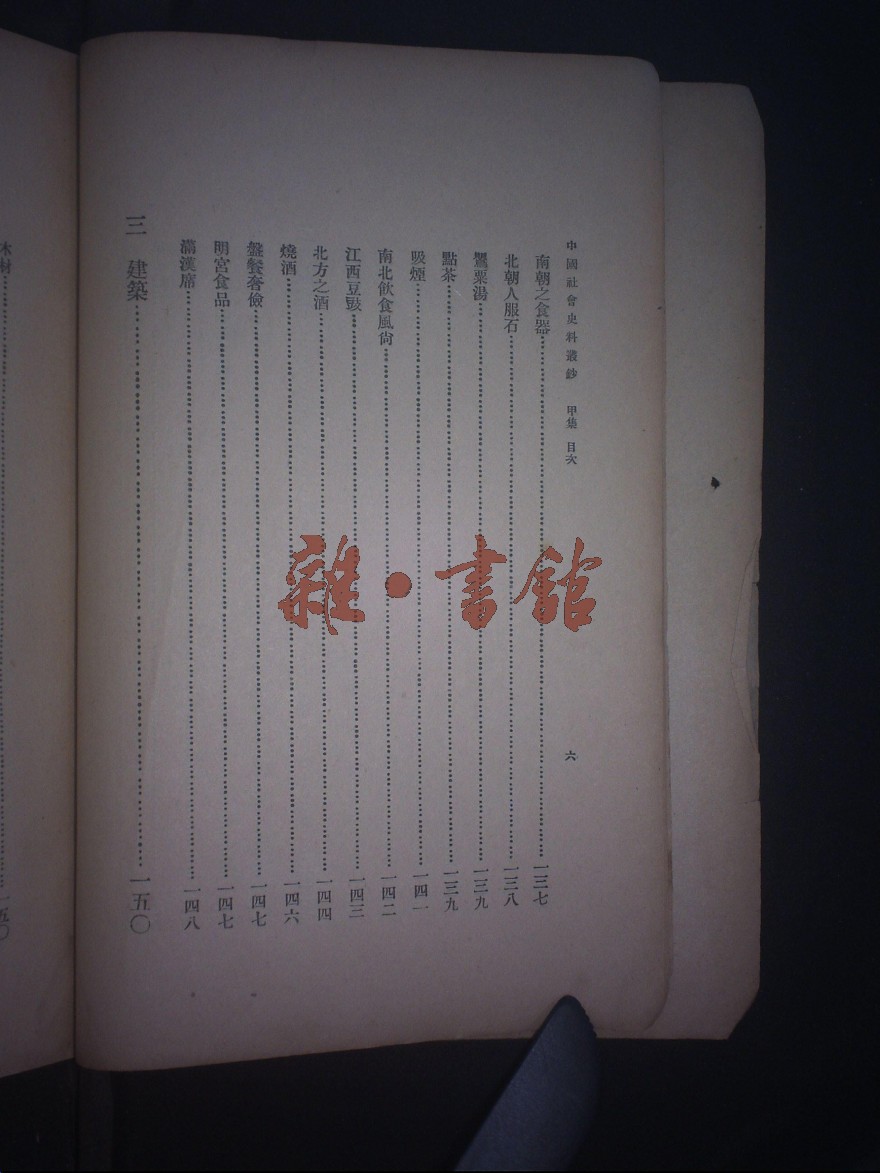 中國社會史料叢鈔 甲集 目次 六
南朝之食器 一三七
北朝人服石 一三八
鸎粟湯 一三九
點茶 一三九
吸煙 一四一
南北飲食風尙 一四二
江西豆豉 一四三
北方之酒 一四四
燒酒 一四六
盤餐奢儉 一四七
明宮食品 一四七
滿漢席 一四八
三 建築 一五〇
木材 一五〇
雜·書館